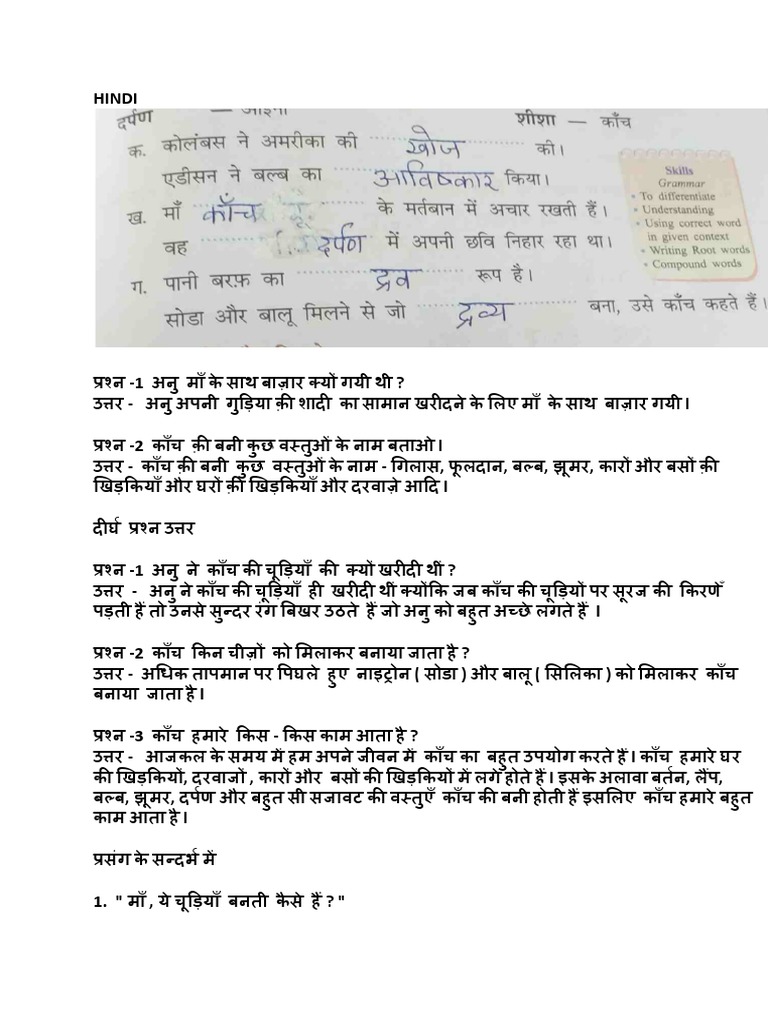 HINDI
दर्पण — आइना शीशा — काँच
क. कोलंबस ने अमरीका की खोज की।
एडीसन ने बल्ब का आविष्कार किया।
ख. माँ काँच के मर्तबान में अचार रखती हैं।
वह दर्पण में अपनी छवि निहार रहा था।
ग. पानी बरफ़ का द्रव रूप है।
सोडा और बालू मिलने से जो द्रव्य बना, उसे काँच कहते हैं।
Skills
Grammar
• To differentiate
• Understanding
• Using correct word
in given context
• Writing Root words
• Compound words
प्रश्न -1 अनु माँ के साथ बाज़ार क्यों गयी थी ?
उत्तर - अनु अपनी गुड़िया क़ी शादी का सामान खरीदने के लिए माँ के साथ बाज़ार गयी।
प्रश्न -2 काँच क़ी बनी कुछ वस्तुओं के नाम बताओ।
उत्तर - काँच क़ी बनी कुछ वस्तुओं के नाम - गिलास, फूलदान, बल्ब, झूमर, कारों और बसों क़ी
खिड़कियाँ और घरों क़ी खिड़कियाँ और दरवाज़े आदि।
दीर्घ प्रश्न उत्तर
प्रश्न -1 अनु ने काँच की चूड़ियाँ की क्यों खरीदी थीं ?
उत्तर - अनु ने काँच की चूड़ियाँ ही खरीदी थीं क्योंकि जब काँच की चूड़ियों पर सूरज की किरणेँ
पड़ती हैं तो उनसे सुन्दर रंग बिखर उठते हैं जो अनु को बहुत अच्छे लगते हैं ।
प्रश्न -2 काँच किन चीज़ों को मिलाकर बनाया जाता है ?
उत्तर - अधिक तापमान पर पिघले हुए नाइट्रोन ( सोडा ) और बालू ( सिलिका ) को मिलाकर काँच
बनाया जाता है।
प्रश्न -3 काँच हमारे किस - किस काम आता है ?
उत्तर - आजकल के समय में हम अपने जीवन में काँच का बहुत उपयोग करते हैं। काँच हमारे घर
की खिड़कियों, दरवाजों , कारों और बसों की खिड़कियों में लगे होते हैं। इसके अलावा बर्तन, लैंप,
बल्ब, झूमर, दर्पण और बहुत सी सजावट की वस्तुएँ काँच की बनी होती हैं इसलिए काँच हमारे बहुत
काम आता है।
प्रसंग के सन्दर्भ में
1. " माँ , ये चूड़ियाँ बनती कैसे हैं ? "